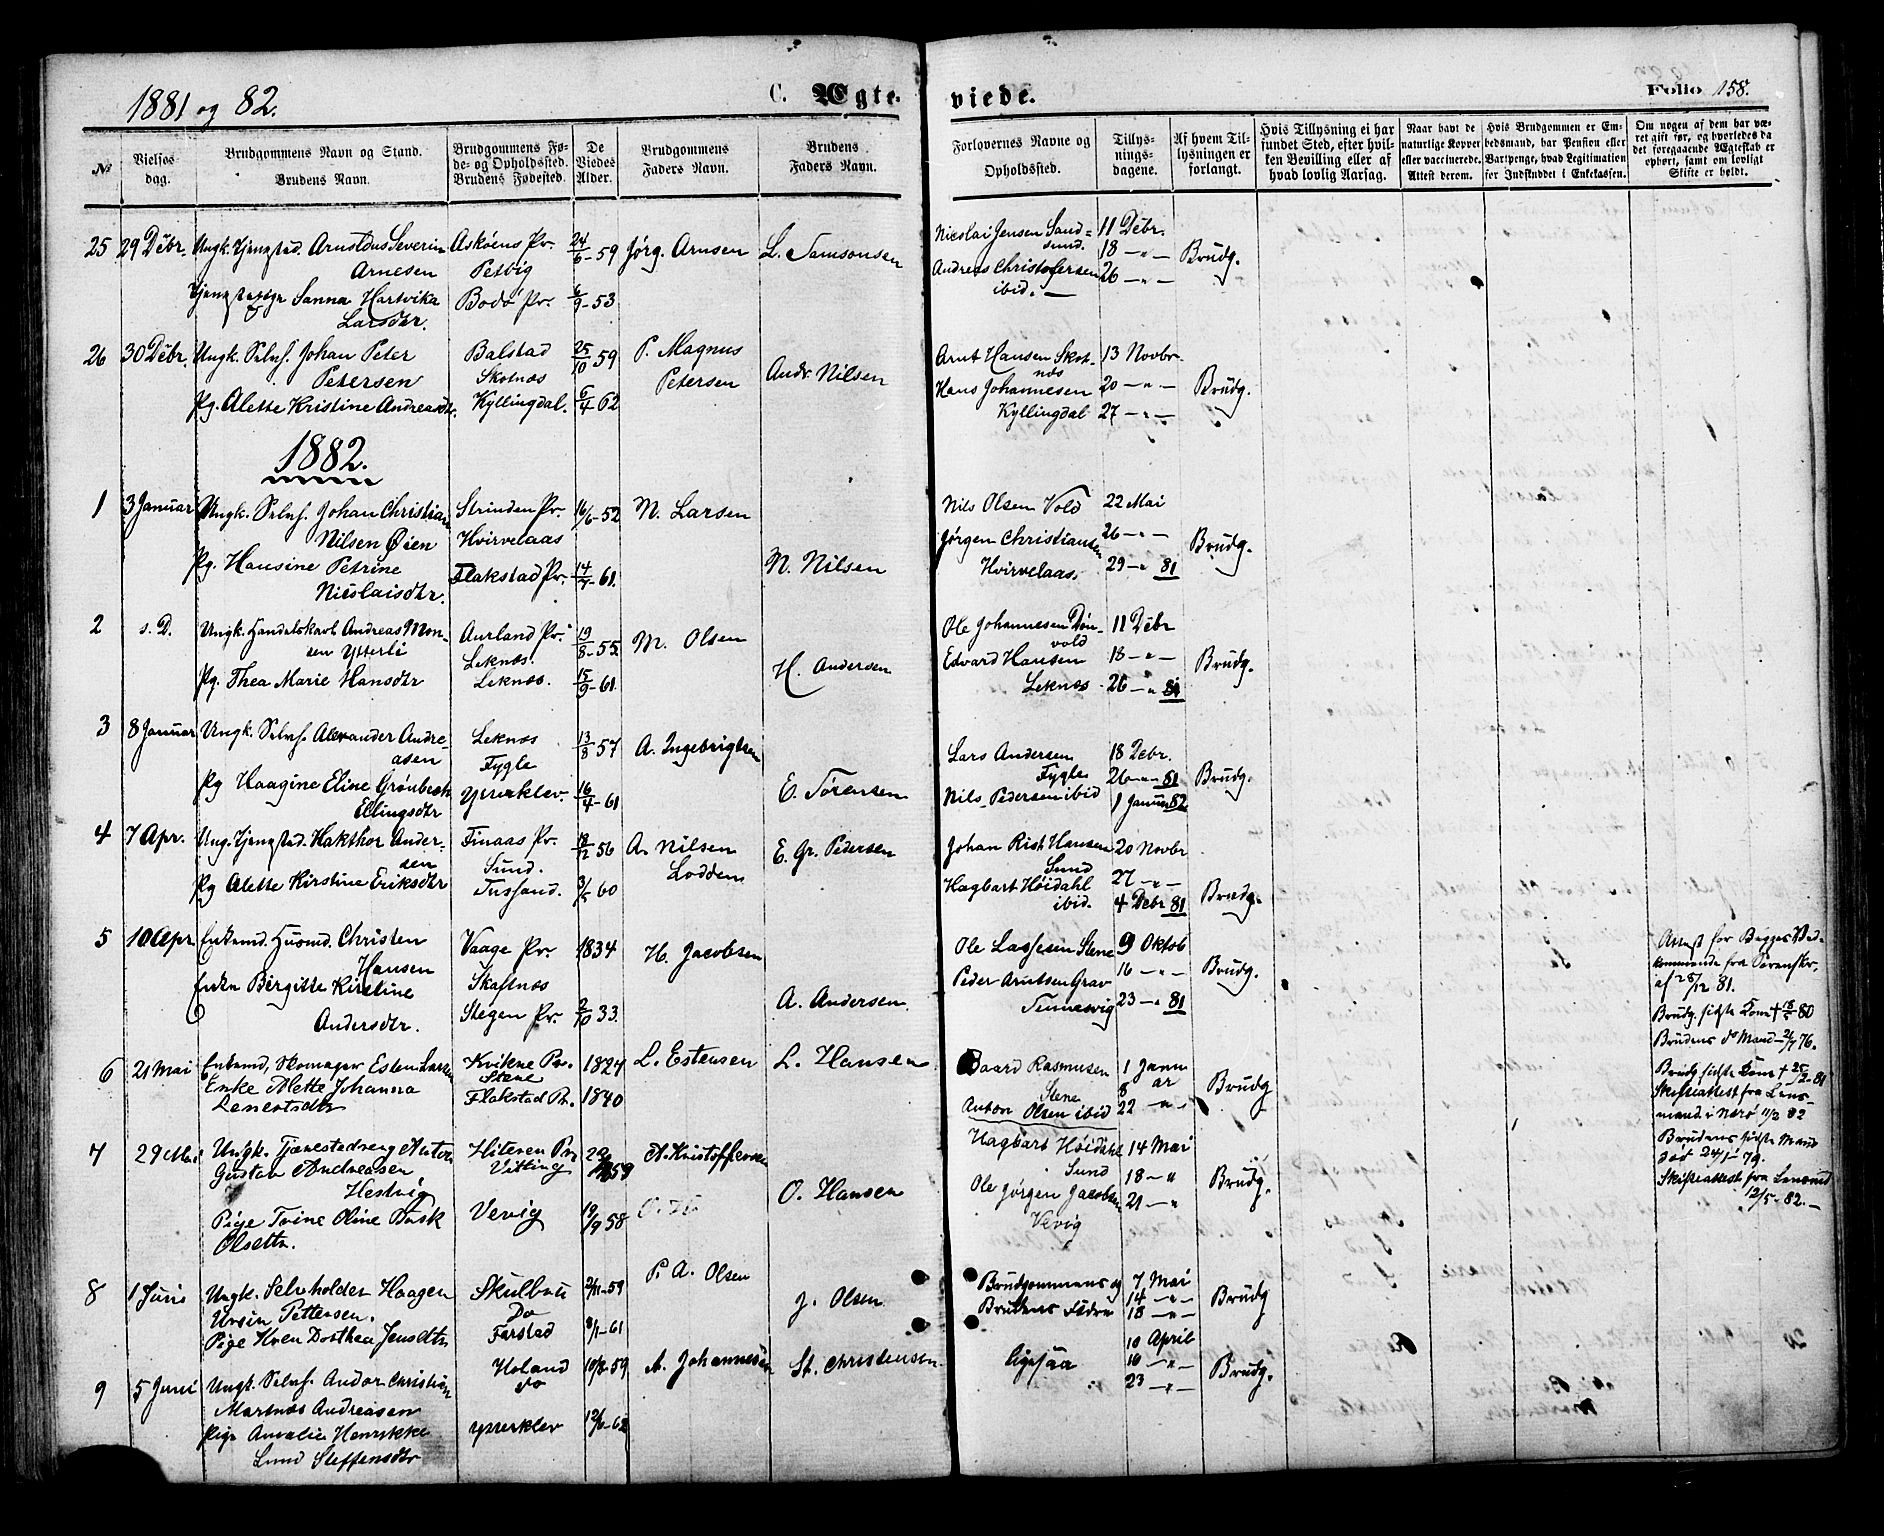 1881 og 82.
C. Ægte-
viede.
Folio 158.
№
Vielses-
dag.
Brudgommens Navn og Stand.
Brudens Navn.
Brudgommens Fø-
de- og Opholdssted.
Brudens Fødested.
De
Viedes
Alder.
Brudgommens
Faders Navn.
Brudens
Faders Navn.
Forlovernes Navne og
Opholdssted.
Tillys-
nings-
dagene.
Af hvem Til-
lysningen er
forlangt.
Hvis Tillysning ei har
fundet Sted, efter hvil-
ken Bevilling eller af
hvad lovlig Aarsag.
Naar havt de
naturlige Kopper
eller vaccinerede.
Attest derom.
Hvis Brudgommen er Em-
bedsmand, har Pension eller
Vartpenge, hvad Legitimation
for Indskuddet i Enkekassen.
Om nogen af dem har væ-
ret gift før, og hvorledes da
det foregaaende Ægteskab er
ophørt, samt om lovligt
Skifte er holdt.
25 29 Debr. Ungk. Tjengstad. Arnoldus Severin
Arnesen
Tjeng Sanna Hartvika
Larsdtr.
Askøens Pr.
Petvig
Bodø Pr.
24/6-59
6/9-53
Jørg. Arnsen
L. Samsonsen
Nicolai Jensen Sand-
sund.
Andreas Christofersen
ibid. —
11 Debr.
18 —"—
26 —"—
Brudg.
26 30 Debr. Ungk. Selvf. Johan Peter
Petersen
Pg. Alette Kristine Andreasdtr.
Balstad
Skotnæs
Kyllingdal.
25/10 59
6/4-62
P. Magnus
Petersen
Andr. Nilsen
Arnt Hansen Skot-
næs
Hans Johannesen
Kyllingdal
13 Novbr.
20 —"—
27 —"—
Brudg.
1882.
1 3 Januar Ungk. Selvf. Johan Christian
Nilsen Øien
Pg. Hansine Petrine
Nicolaisdtr.
Strinden Pr.
Hvirvelaas
Flakstad Pr.
16/6-52
14/7-61.
M. Larsen
M. Nilsen
Nils Olsen Vold
Jørgen Christiansen
Hvirvelaas.
22 Mai
26 —"—
29 —" 81
Brudg.
2 s. D. Ungk. Handelskarl Andreas Mon-
sen Ytterli
Pg. Thea Marie Hansdtr
Aurland Pr.
Leknæs.
Leknæs.
19/8-55.
15/9-61.
M. Olsen
H. Andersen
Ole Johannesen Døn-
vold
Edvard Hansen
Leknæs.
11 Debr
18 —"—
26 —" 81
Brudg.
3 8 Januar Ungk. Selvf. Alexander Andre-
asen
Pg Haagine Eline Grønbech
Ellingsdtr
Leknæs
Fygle
Ypperklev.
13/8 57
16/4-61
A. Ingebrigtsen
E. Sørensen
Lars Andersen
Fygle.
Nils Pedersen ibid
18 Debr.
26 —"— 81
1 Januar 82
Brudg.
4 7 Apr. Ung. Tjengstad. Hakthor Ander-
sen
Pg Alette Kirstine Eriksdtr
Finaas Pr.
Sund.
Tussand.
56
3/5 60
A. Nilsen
Lodden
E. Gr. Pedersen
Johan Rist Hansen
Sund
Hagbart Høidahl
ibid.
20 Novbr.
27 —"—
4 Debr 81
Brudg.
5 10 Apr. Enkemd. Husmd. Christen
Hansen
Enken Birgitte Kirstine
Andersdtr.
Vaage Pr.
Skaftnæs
Stegen Pr.
1834
2/10 33.
H. Jacobsen
A. Andersen.
Ole Lassesen Stene
Peder Arntsen Grav
Tennesvig
9 Oktob
16 —"—
23 —" 81
Brudg.
Attest for Begges Ved-
kommende fra Sorenskr.
af 28/12 81.
Brudg. sidste Kone † 18/5 80
Brudens do Mand 76.
6 21 Mai Enkemd, Skomager Esten Larsen
Enke Alette Johanna
Lenertsdtr
Kvikne Pr.
Stene
Flakstad Pr.
1824
1840
L. Estensen
L. Hansen
Baard Rasmusen
Stene
Anton Olsen ibid
1 Janu
ar
8
22 —"—
Brudg
Brudg sidste Kone † 25/2-81
Skifteattest fra Lens-
mand. i Nærø 11/2 82
Brudens sidste Mand
død 24/1-79.
Skifteattest fra Lensmd
12/5-82.—
7 29 Mai Ungk. Tjenestedreng Anton
Gustav Andreasen
Hestvig
Pige Trine Oline Bask
Olsdtr.
Hiteren Pr.
Vitting
Vevig
59
19/9 58
A. Kristoffersen
O. Hansen
Hagbart Høidahl
Sund
Ole Jørgen Jacobsen
Vevig
14 Mai
18 —"
21 —"
Brudg.
8 1 Juni Ungk. Selveholder Haagen
Ursin Pettersen.
Pige Hven Dorthea Jensdtr
Skulbru
Do
Farstad
2/11-59
8/1-61
P. A. Olsen
J. Olsen
Brudgommens og
Brudens Fædre
7 Mai
14 —"—
18 —"—
Brudg
9 5 Juni Ungk. Selvf. Andor Christian
Martnæs Andreasen
Pige Amalie Henrikke
Lund Steffensdtr
Holand
do
Ypperklev
59
12/6-62
A. Johannesen
St. Christensen
ligesaa
10 April
16 —"—
23 —"—
Brudg.